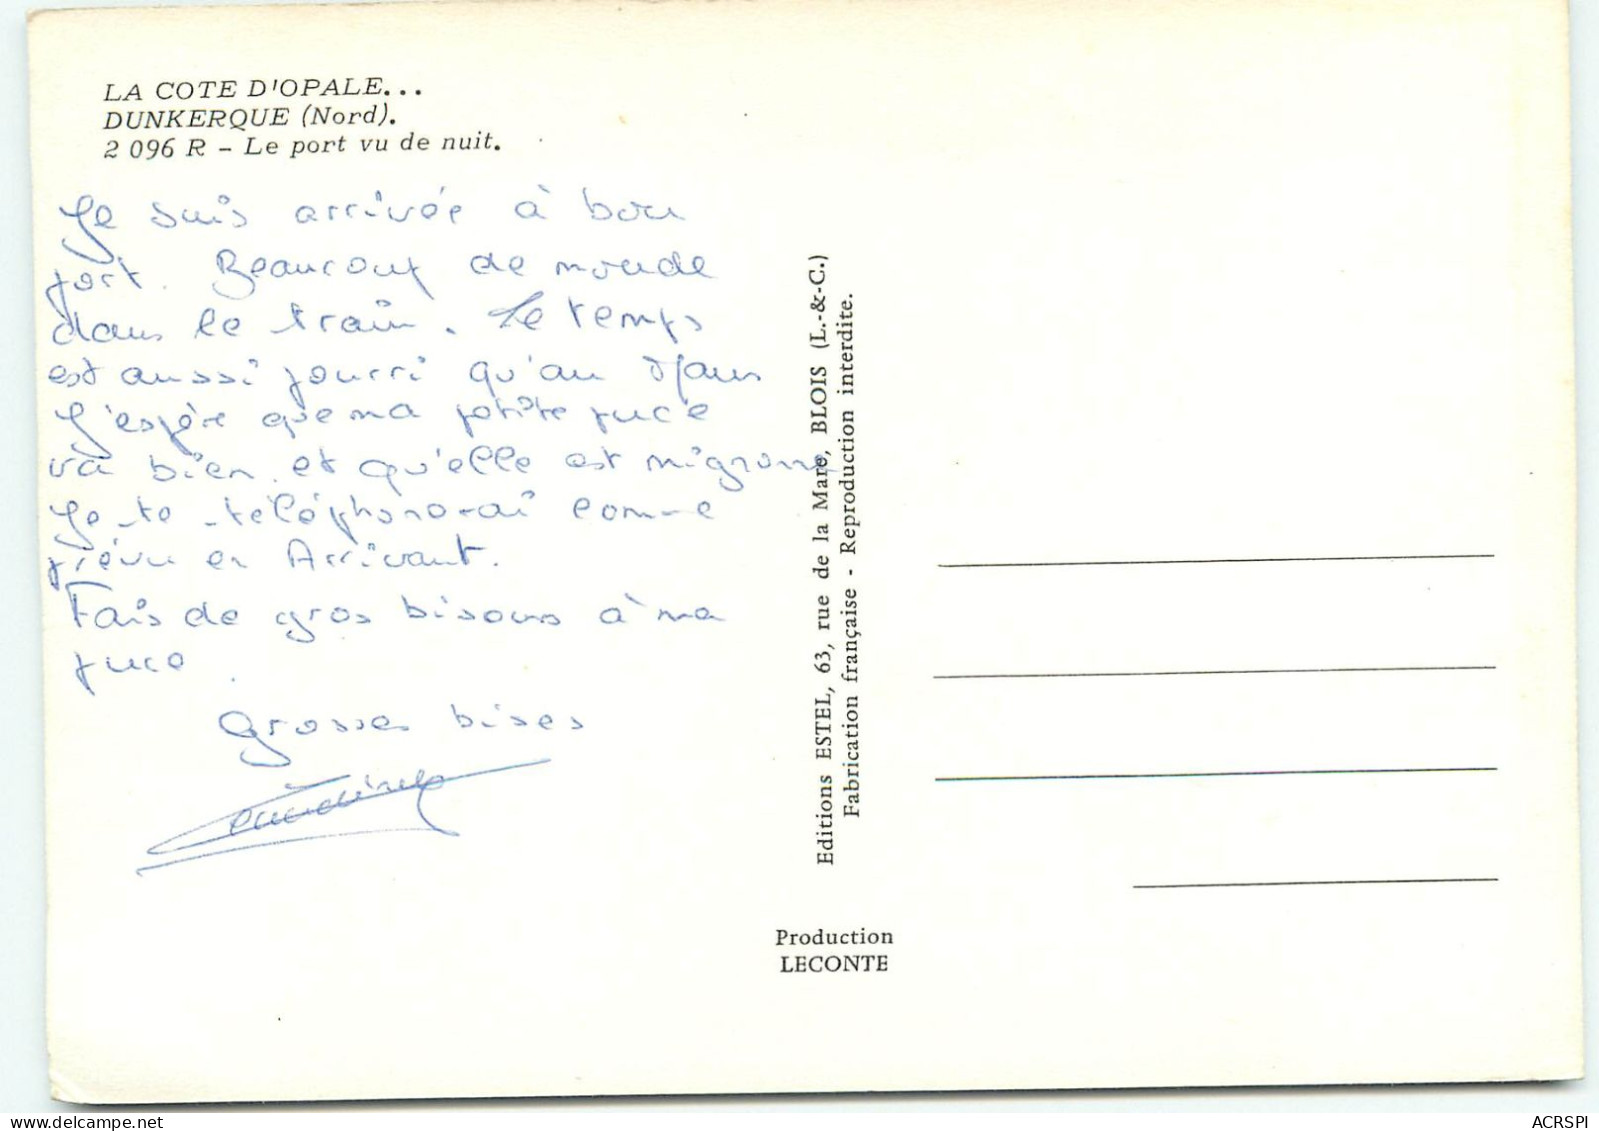 LA COTE D'OPALE...
DUNKERQUE (Nord).
2 096 R - Le port vu de nuit.
Je suis arrivée à bon
port. Beaucoup de monde
dans le train. Le temps
est aussi pourri qu'au Mans
J'espère que ma petite puce
va bien et qu'elle est mignonne
Je te téléphonerai comme
prévu en Arrivant.
Fais de gros bisous à ma
puce.
Grosses bises
Editions ESTEL, 63, rue de la Mare, BLOIS (L.-&-C.)
Fabrication française - Reproduction interdite.
Production
LECONTE
ACRSPI